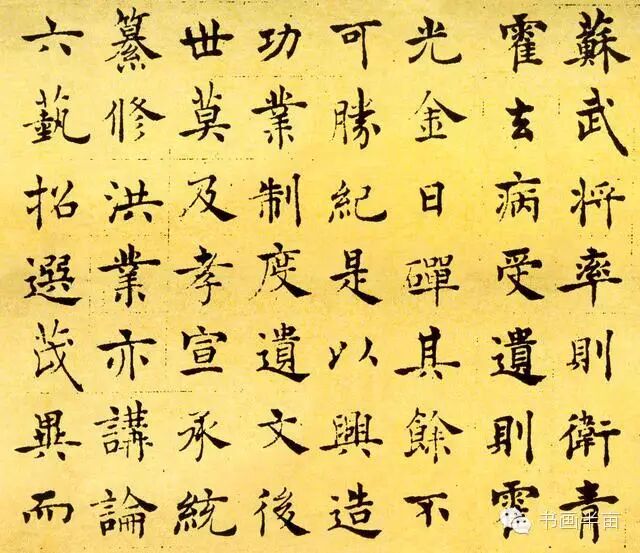 蘇武將率則衛青
霍去病受遺則霍
光金日磾其餘不
可勝紀是以興造
功業制度遺文後
世莫及孝宣承統
纂修洪業亦講論
六藝招選茂異而
书画半亩